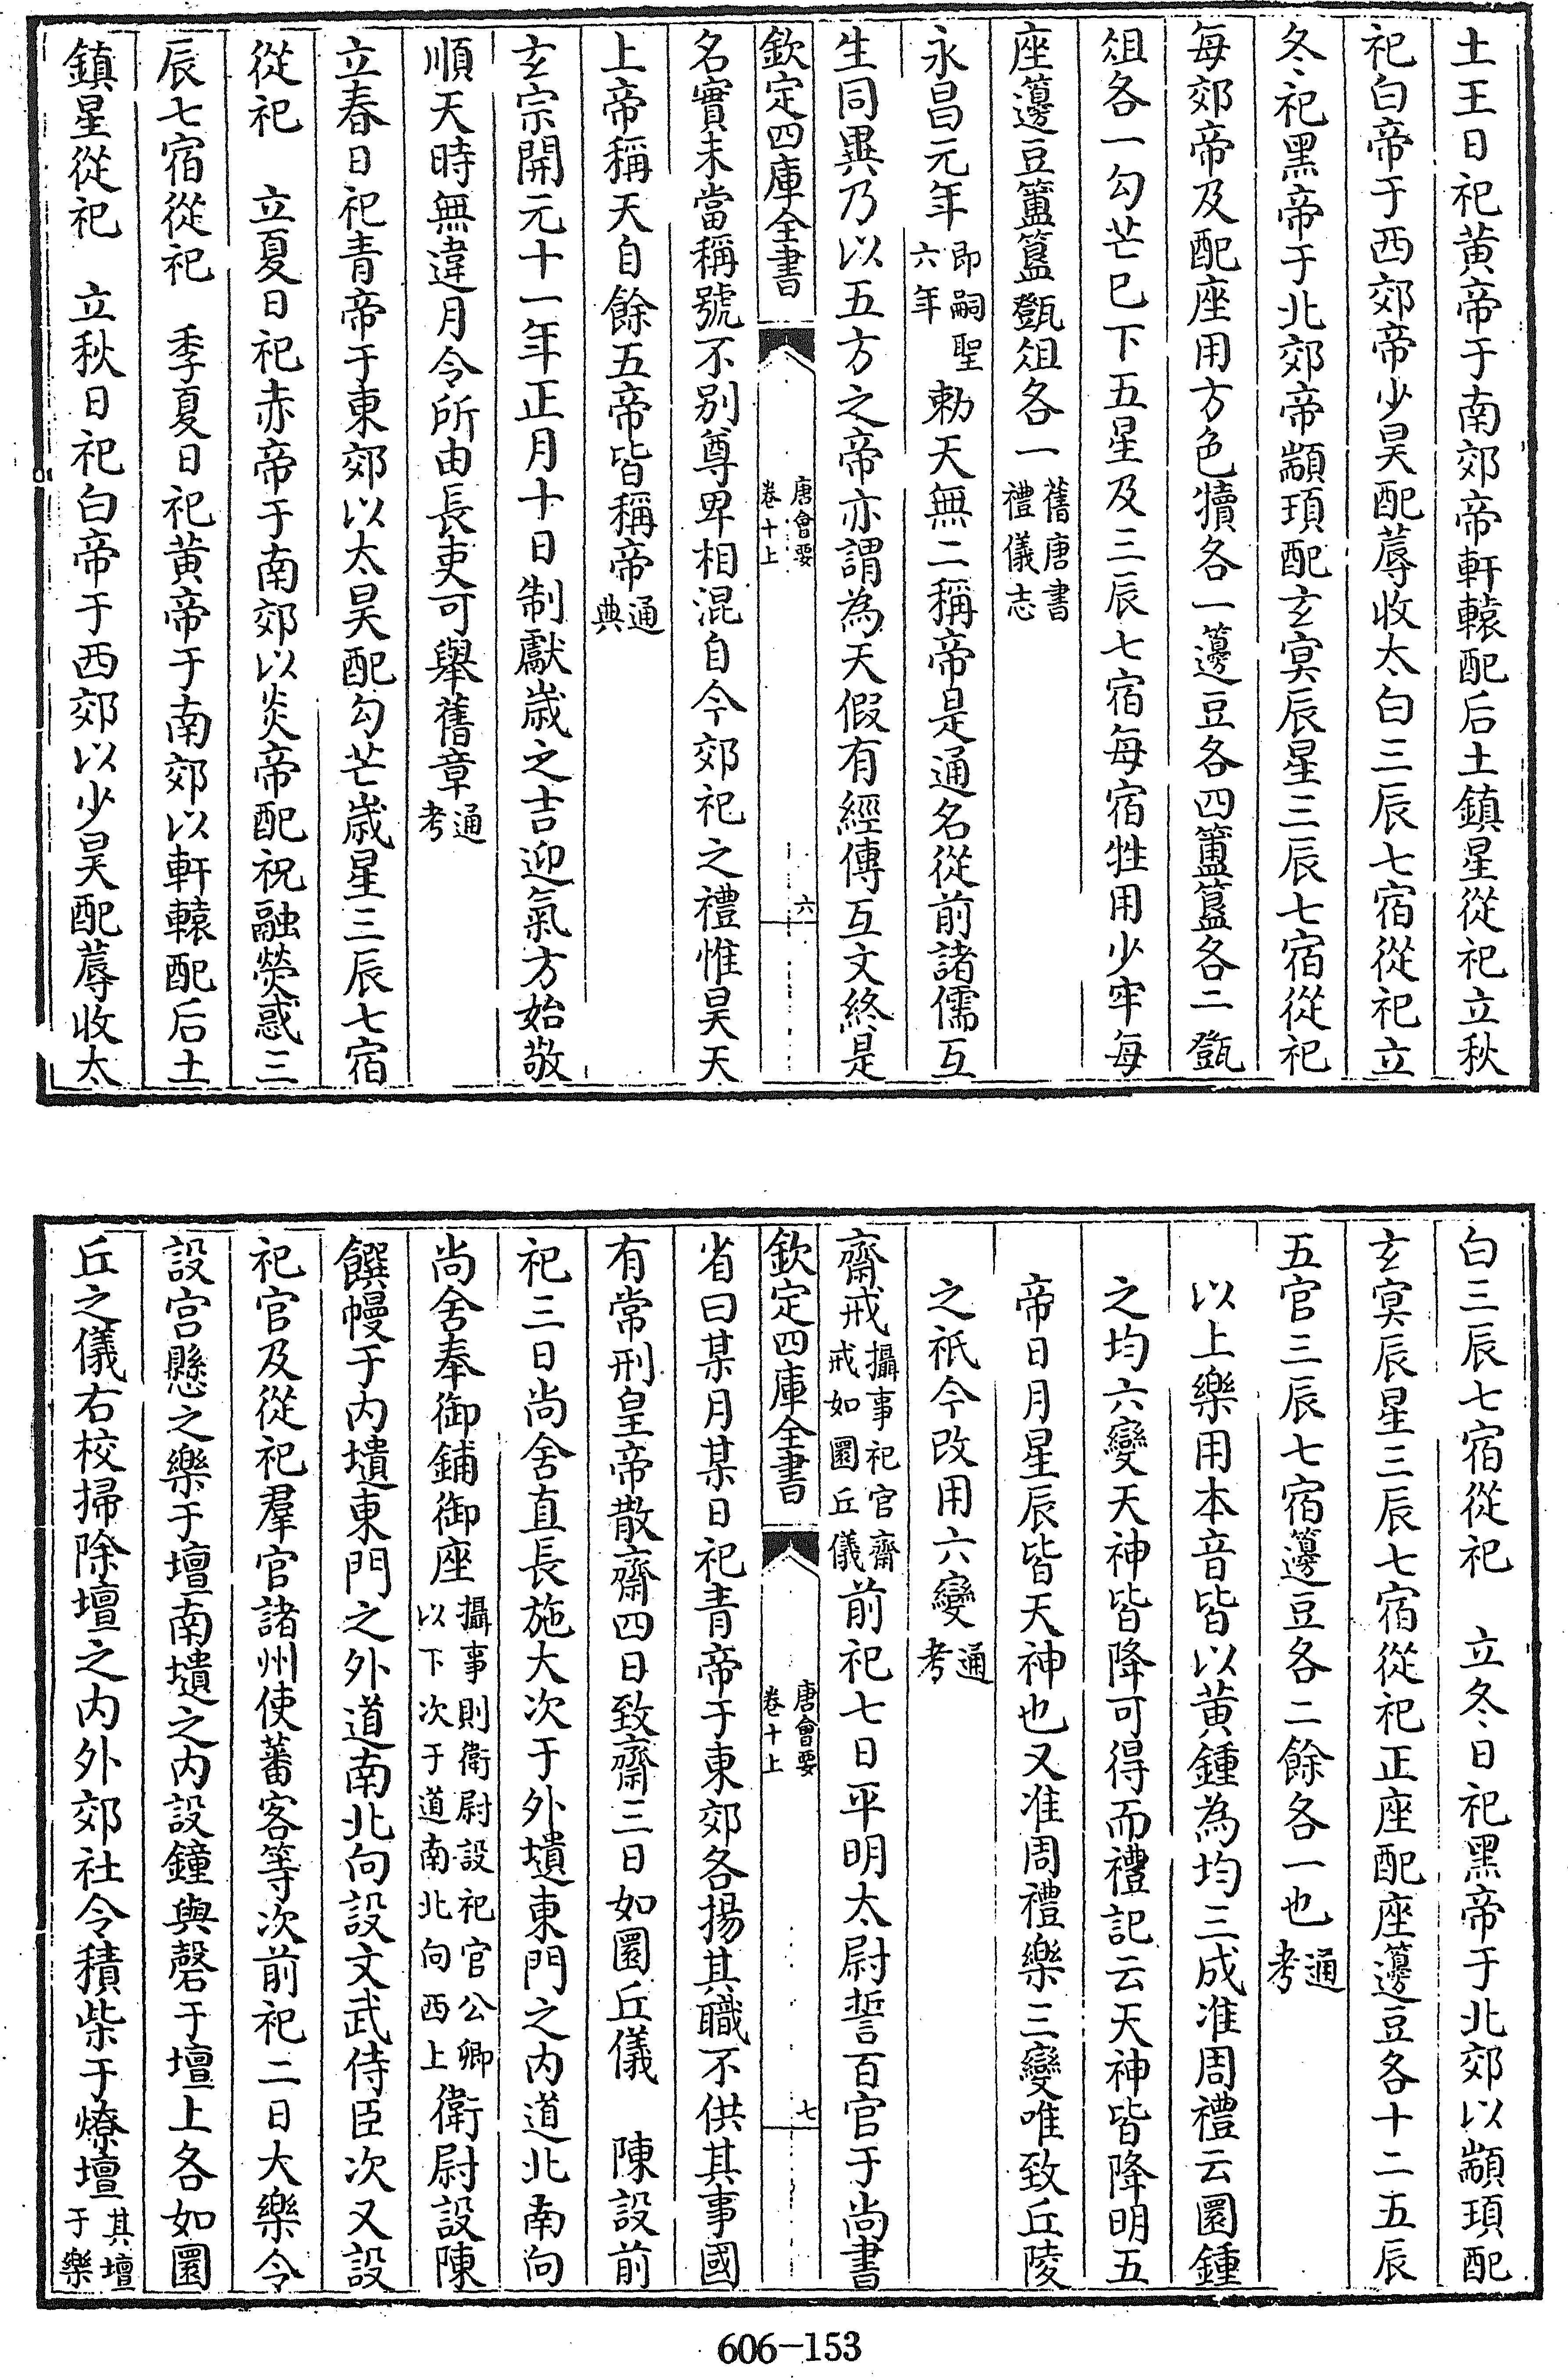 土王日祀黄帝于南郊帝軒轅配后土鎮星從祀立秋
祀白帝于西郊帝少昊配蓐收太白三辰七宿從祀立
冬祀黑帝于北郊帝顓頊配玄冥辰星三辰七宿從祀
每郊帝及配座用方色犢各一籩豆各四簠簋各二㽅
俎各一勾芒已下五星及三辰七宿每宿牲用少牢每
座籩豆簠簋㽅俎各一舊唐書禮儀志
永昌元年即嗣聖六年勅天無二稱帝是通名從前諸儒互
生同異乃以五方之帝亦謂為天假有經傳互文終是
欽定四庫全書 唐會要卷十上 六
名實未當稱號不别尊卑相混自今郊祀之禮惟昊天
上帝稱天自餘五帝皆稱帝通典
玄宗開元十一年正月十日制獻歲之吉迎氣方始敬
順天時無違月令所由長吏可舉舊章通考
立春日祀青帝于東郊以太昊配勾芒歲星三辰七宿
從祀 立夏日祀赤帝于南郊以炎帝配祝融熒惑三
辰七宿從祀 季夏日祀黄帝于南郊以軒轅配后土
鎮星從祀 立秋日祀白帝于西郊以少昊配蓐收太
白三辰七宿從祀 立冬日祀黑帝于北郊以顓頊配
玄冥辰星三辰七宿從祀正座配座籩豆各十二五辰
五官三辰七宿籩豆各二餘各一也通考
以上樂用本音皆以黄鍾為均三成准周禮云圜鍾
之均六變天神皆降可得而禮記云天神皆降明五
帝日月星辰皆天神也又准周禮樂三變唯致丘陵
之祇今改用六變通考
齋戒攝事祀官齋戒如圜丘儀前祀七日平明太尉誓百官于尚書
欽定四庫全書 唐會要卷十上 七
省曰某月某日祀青帝于東郊各揚其職不供其事國
有常刑皇帝散齋四日致齋三日如圜丘儀 陳設前
祀三日尚舍直長施大次于外壝東門之内道北南向
尚舍奉御鋪御座攝事則衛尉設祀官公卿以下次于道南北向西上衛尉設陳
饌幔于内壝東門之外道南北向設文武侍臣次又設
祀官及從祀羣官諸州使蕃客等次前祀二日大樂令
設宫懸之樂于壇南壝之内設鐘與磬于壇上各如圜
丘之儀右校掃除壇之内外郊社令積柴于燎壇其壇于樂
606-153